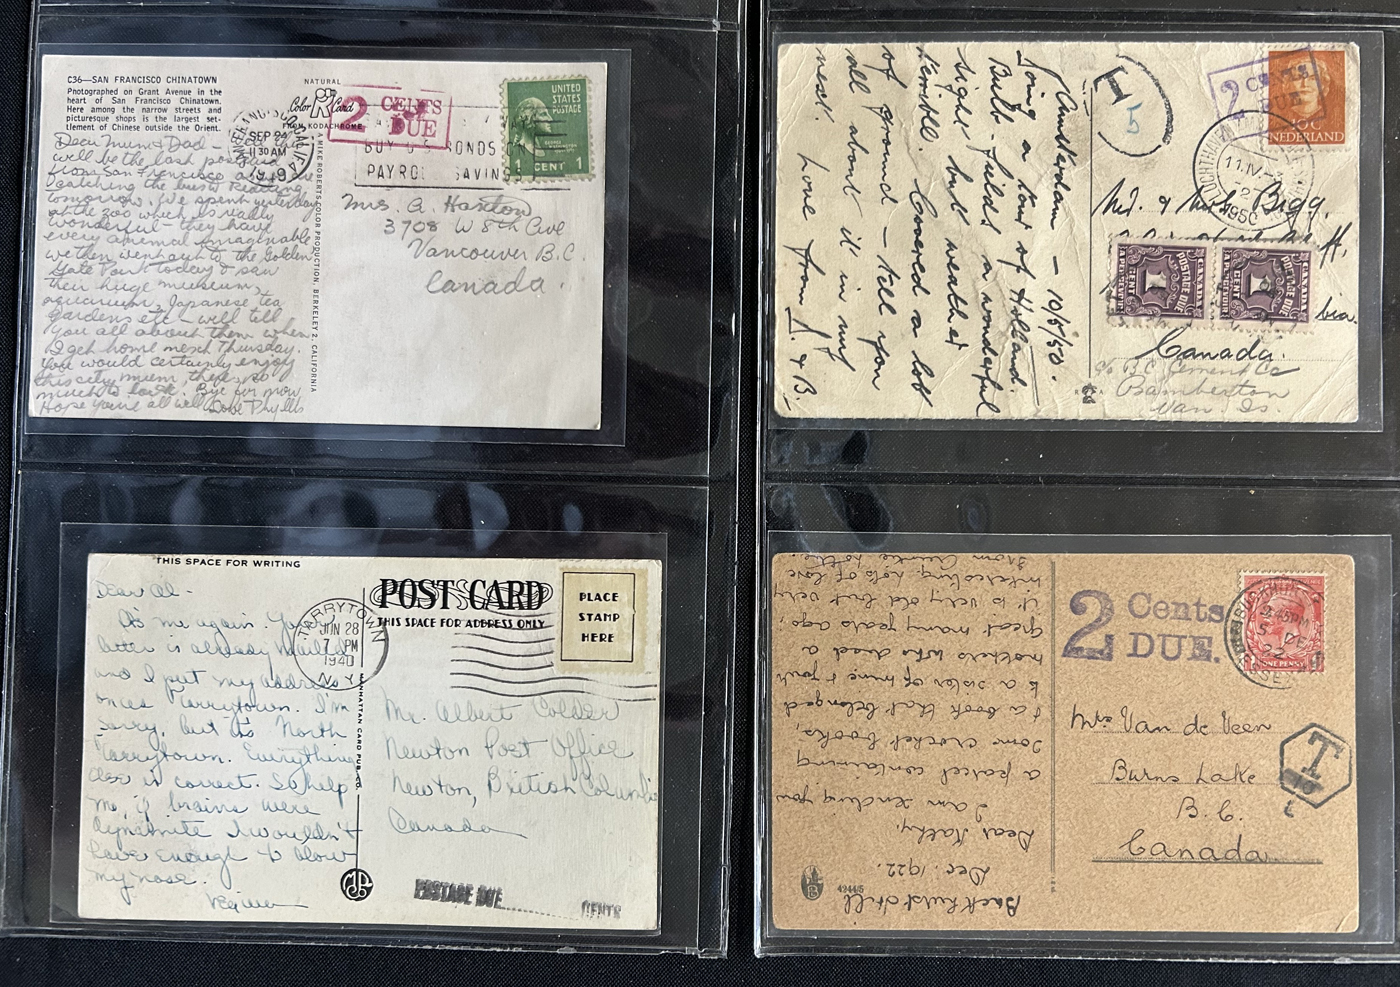 C36—SAN FRANCISCO CHINATOWN
Photographed on Grant Avenue in the
heart of San Francisco Chinatown.
Here among the narrow streets and
picturesque shops is the largest set-
tlement of Chinese outside the Orient.
NATURAL
Color Card
FROM KODACHROME
2 CENTS
DUE
SEP 24
11 30 AM
BUY U.S. BONDS
PAYROLL SAVINGS
UNITED
STATES
POSTAGE
1 CENT 1
A MIKE ROBERTS COLOR PRODUCTION, BERKELEY 2, CALIFORNIA
Dear Mum & Dad - This
will be the last postcard
from San Francisco as we're
catching the bus
tomorrow. We spent yesterday
at the zoo which is really
wonderful - they have
every animal imaginable
we then went out to the Golden
Gate Park today & saw
their huge museum,
aquarium, Japanese tea
gardens etc - will tell
you all about them when
I get home next Thursday.
You would certainly enjoy
this city mum, there's so
much to look. Bye for now
Hope you're all well Love Phyllis
Mrs. A. Haxton
3708 W 8th Ave
Vancouver B.C.
Canada.
Amsterdam — 10/5/50.
Doing a tour of Holland.
Bulb fields a wonderful
sight but weather
terrible. Covered a lot
of ground — tell you
all about it in my
next.
Love from J. & B.
T
5
2 CENTS
DUE
10c
NEDERLAND
11.IV
1950
Mr. & Mrs. Bigg.
POSTAGE DUE
1 CENT
POSTAGE DUE
1 CENT
bia.
Canada.
c/o B.C. Cement Co
Bamberton
Van. Is.
THIS SPACE FOR WRITING
POST CARD
THIS SPACE FOR ADDRESS ONLY
PLACE
STAMP
HERE
TARRYTOWN
JUN 28
7 PM
1940
N.Y.
MANHATTAN CARD PUB. CO.
Dear Al -
It's me again. Your
letter is already mailed
and I put my address
ones Tarrytown. I'm
sorry, but it's North
Tarrytown. Everything
else is correct. So help
me, if brains were
dynamite I wouldn't
have enough to blow
my nose.
Mr. Albert Colder
Newton Post Office
Newton, British Columbia
Canada
POSTAGE DUE CENTS
2 Cents
DUE.
2:45 PM
5 DE
22
ONE PENNY
T
10
Mrs Van de Veen
Burns Lake
B.C.
Canada
4244/5
Buckhurst Hill
Dec. 1922.
Dear Kathy,
I am sending you
a parcel containing
some crochet books,
& a book that belonged
to a sister of mine & your
mothers who died a
great many years ago,
it is very old but very
interesting, lots of love
from Auntie